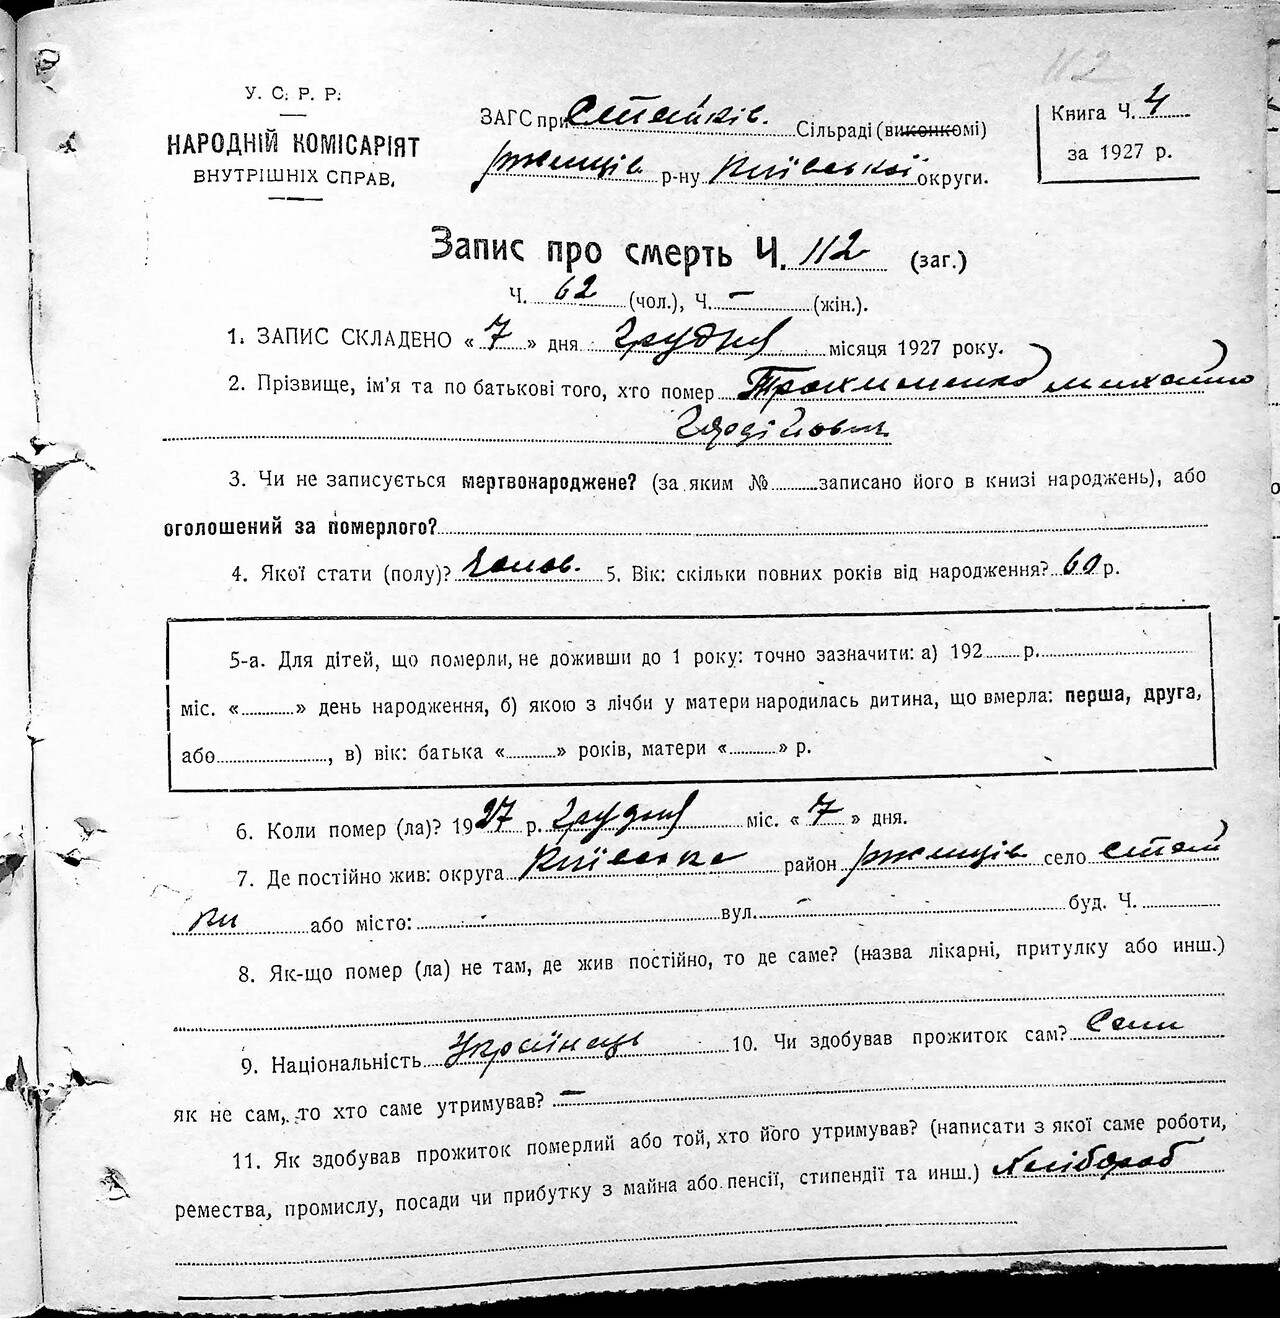 112
У. С. Р. Р.
НАРОДНІЙ КОМІСАРІЯТ
ВНУТРІШНІХ СПРАВ.
ЗАГС при Стайків. Сільраді (виконкомі)
Ржищів р-ну Київської округи.
Книга Ч. 4
за 1927 р.
Запис про смерть Ч. 112 (заг.)
Ч. 62 (чол.), Ч. – (жін.).
1. ЗАПИС СКЛАДЕНО « 7 » дня Грудня місяця 1927 року.
2. Прізвище, ім'я та по батькові того, хто помер Трохименко Михайло
Гордійович
3. Чи не записується мертвонароджене? (за яким № записано його в книзі народжень), або
оголошений за померлого?
4. Якої стати (полу)? Чолов. 5. Вік: скільки повних років від народження? 60 р.
5-а. Для дітей, що померли, не доживши до 1 року: точно зазначити: а) 192 р.
міс. « » день народження, б) якою з лічби у матери народилась дитина, що вмерла: перша, друга,
або , в) вік: батька « » років, матери « » р.
6. Коли помер (ла)? 1927 р. Грудня міс. « 7 » дня.
7. Де постійно жив: округа Київська район Ржищів село Стай
ки або місто: - вул. – буд. Ч.
8. Як-що помер (ла) не там, де жив постійно, то де саме? (назва лікарні, притулку або инш.)
9. Національність Українець 10. Чи здобував прожиток сам? Сам
як не сам, то хто саме утримував? –
11. Як здобував прожиток померлий або той, хто його утримував? (написати з якої саме роботи,
ремества, промислу, посади чи прибутку з майна або пенсії, стипендії та инш.) Хлібороб